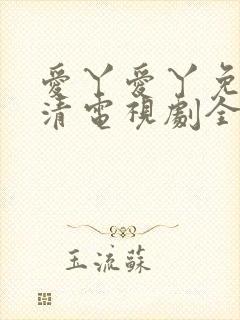 愛丫愛丫免
清電視劇全
玉流蘇